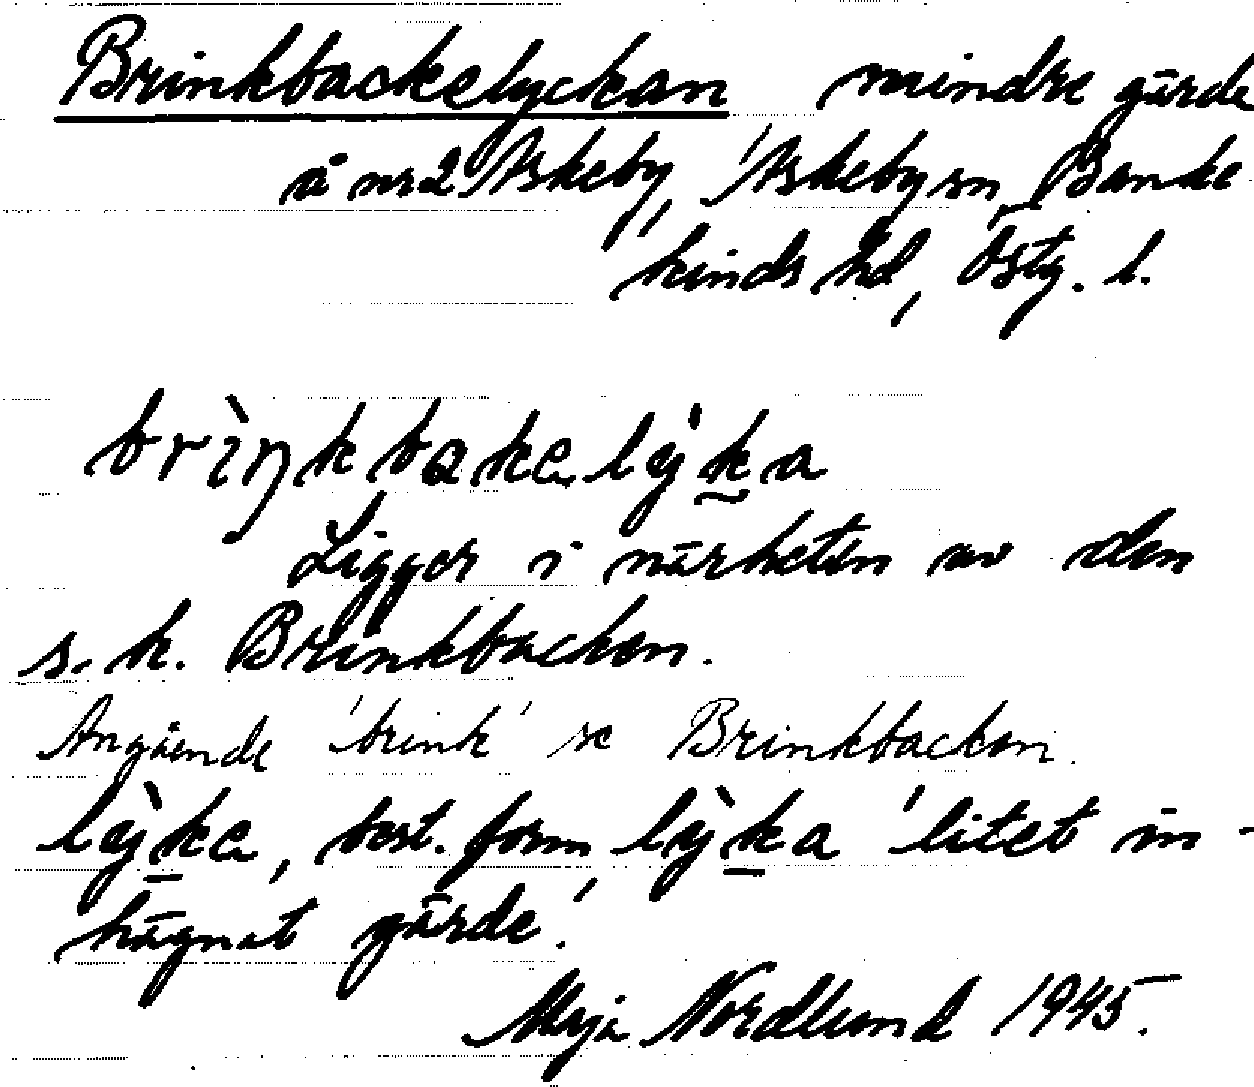 Brinkbackelyckan mindre gärde
å nr 2 Askeby, Askeby sn, Banke
kinds hd, Östg. l.
brìŋkbakelyka
Ligger i närheten av den
s. k. Brinkbacken.
Angående 'brink' se Brinkbacken.
lỳke, best. form lỳka 'litet in-
hägnat gärde'.
Maja Nordlund 1945.